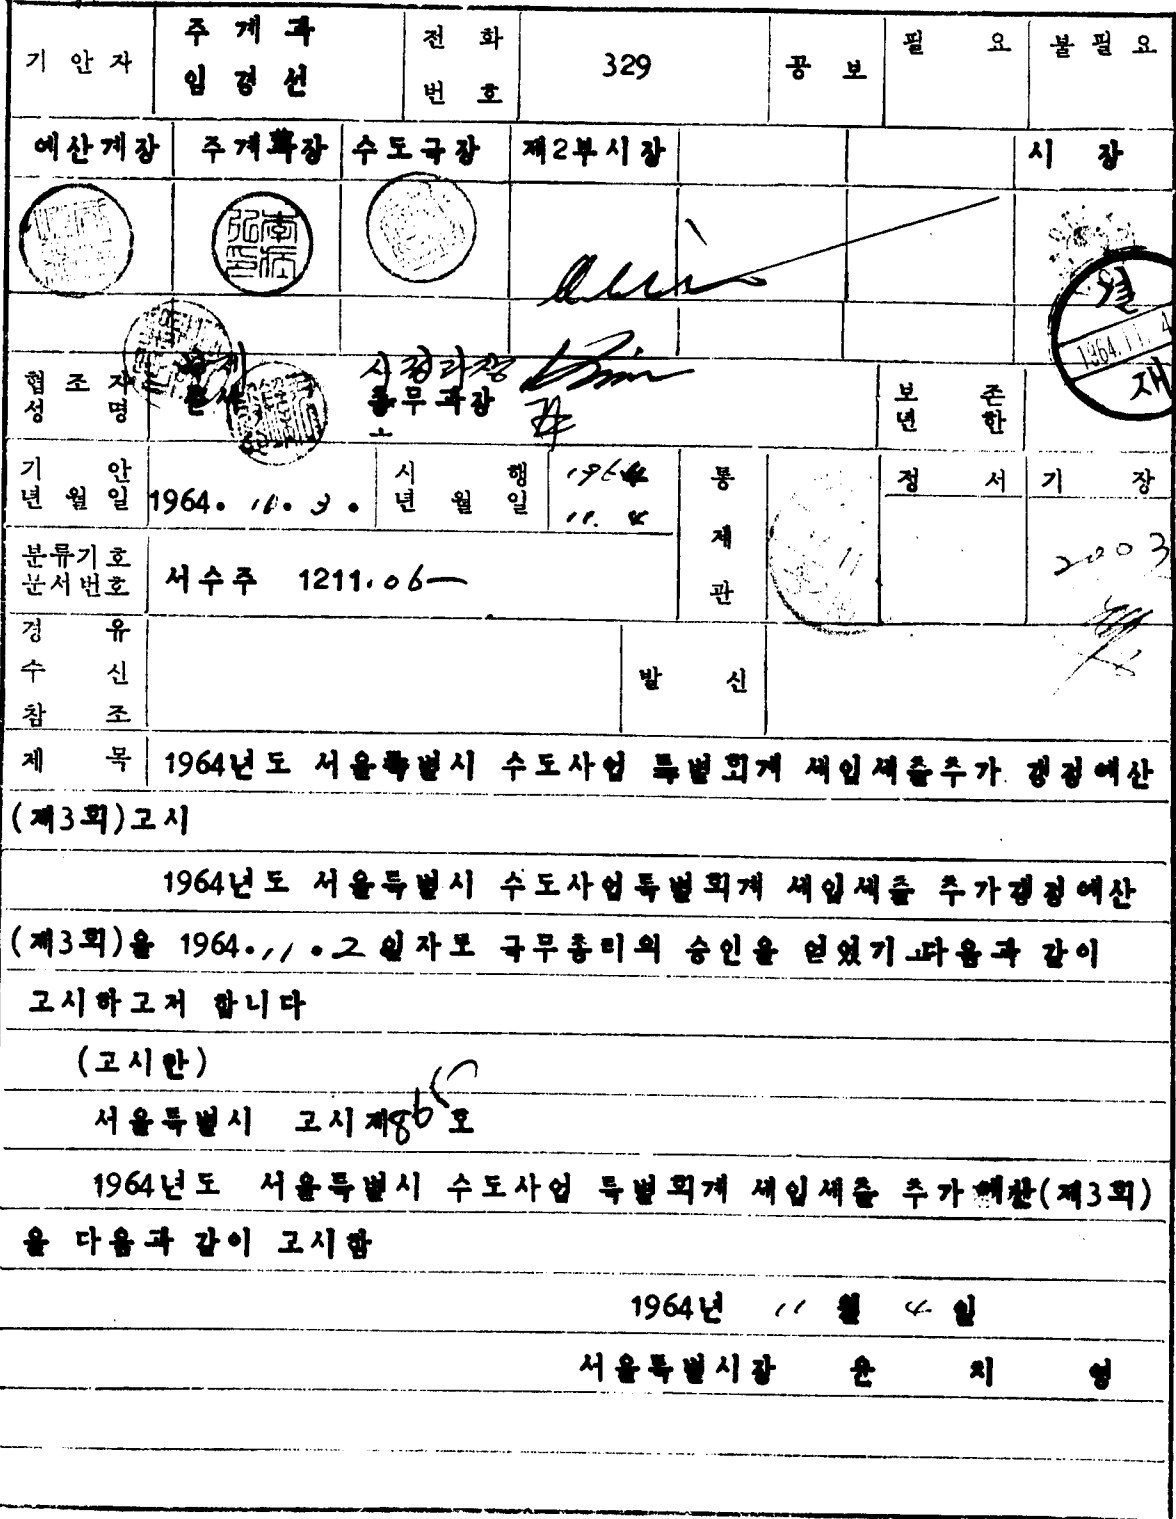 기안자 주계과 임경선 전화번호 329 공보 필요 불필요
예산계장 주계과장 수도국장 제2부시장 시장
1964.11.4
협조자 성명 시정과장 총무과장 보존년한
기안년월일 1964. 11. 3. 시행년월일 1964 11. 4 통제관 정서 기장
분류기호 문서번호 서수주 1211.06— 2003
경유
수신 발신
참조
제목 1964년도 서울특별시 수도사업 특별회계 세입세출추가 갱정예산
(제3회)고시
1964년도 서울특별시 수도사업특별회계 세입세출 추가갱정예산
(제3회)을 1964.11.2 일자로 국무총리의 승인을 얻었기 다음과 같이
고시하고저 합니다
(고시안)
서울특별시 고시제 호
1964년도 서울특별시 수도사업 특별회계 세입세출 추가 예산(제3회)
을 다음과 같이 고시함
1964년 11 월 4 일
서울특별시장 윤 치 영